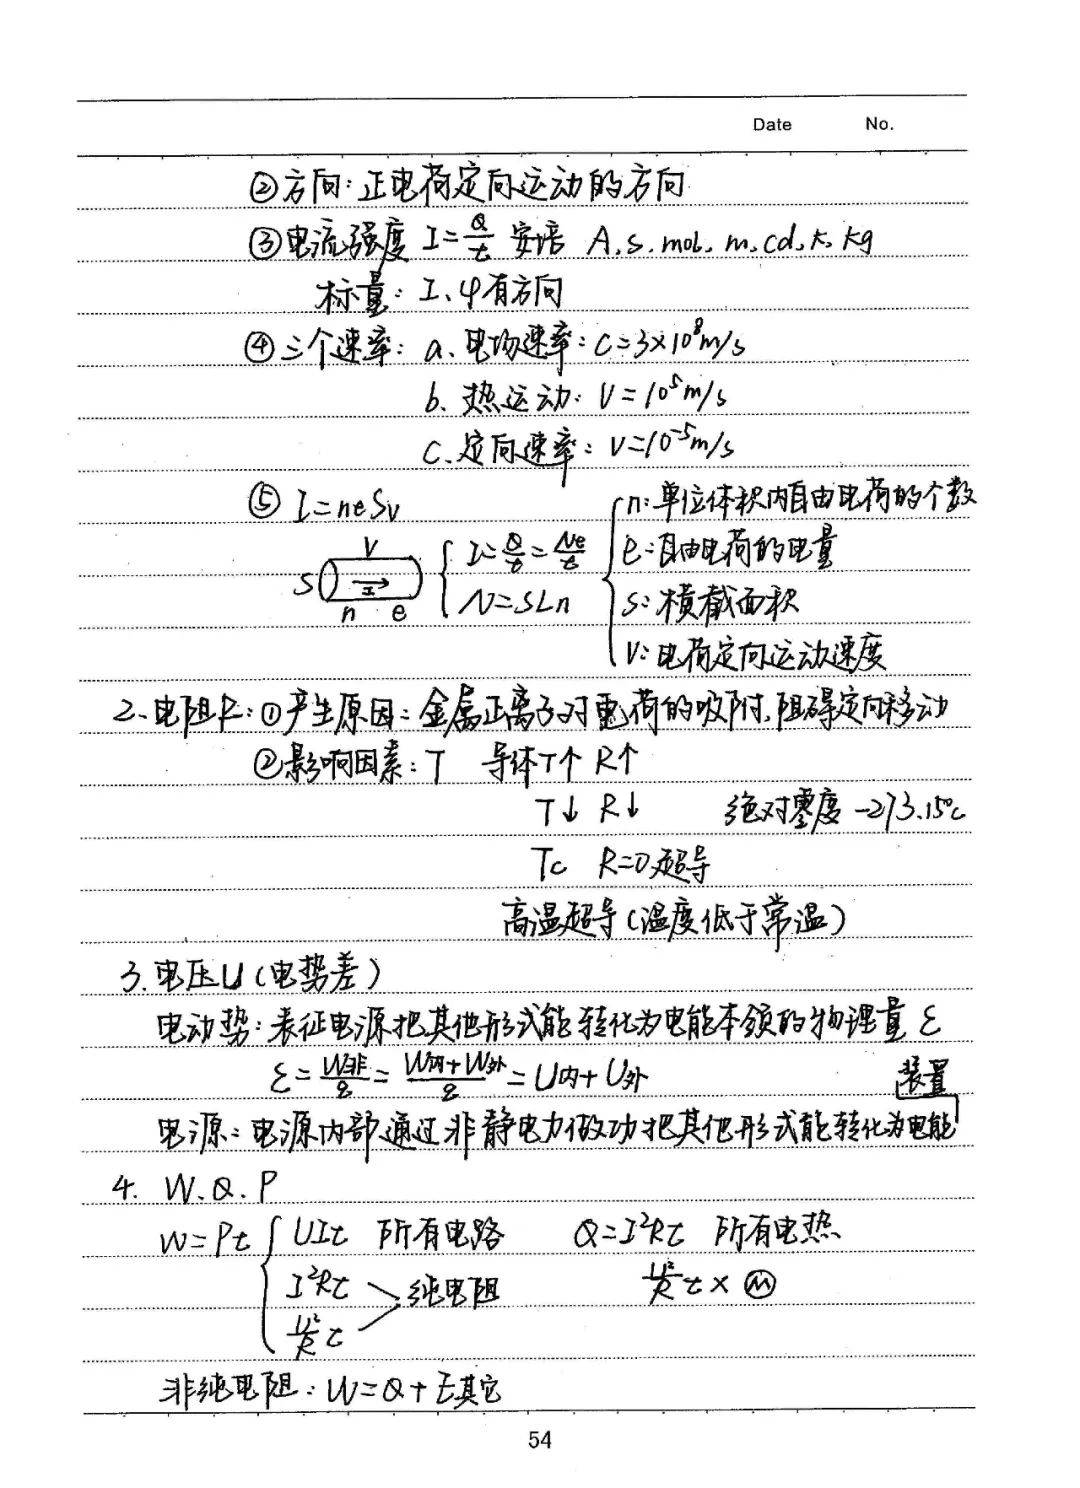 Date No.
②方向:正电荷定向运动的方向
③电流强度 I=Q/t 安培 A.s.mol.m.cd.k.kg
标量:I、φ有方向
④三个速率:a、电场速率:C=3×10⁸m/s
b、热运动:V=10⁵m/s
c、定向速率:V=10⁻⁵m/s
⑤ I=neSv
n:单位体积内自由电荷的个数
V
S I
n e
I=Q/t=Ne/t
N=SLn
e:自由电荷的电量
S:横截面积
V:电荷定向运动速度
2、电阻R:①产生原因:金属正离子对电荷的吸附,阻碍定向移动
②影响因素:T 导体T↑ R↑
T↓ R↓ 绝对零度 -273.15℃
Tc R=0超导
高温超导(温度低于常温)
3.电压U(电势差)
电动势:表征电源把其他形式能转化为电能本领的物理量 ε
ε=W非/q=W内+W外/q=U内+U外 装置
电源:电源内部通过非静电力做功把其他形式能转化为电能
4. W.Q.P
W=Pt { UIt 所有电路 Q=I²Rt 所有电热
I²Rt 纯电阻 U²/R t × Ⓜ
U²/R t
非纯电阻:W=Q+E其它
54